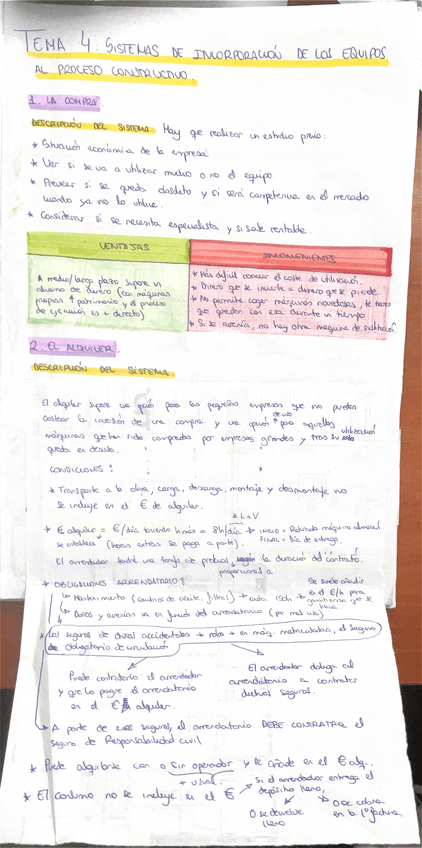 TEMA 4: SISTEMAS DE INCORPORACIÓN DE LOS EQUIPOS
AL PROCESO CONSTRUCTIVO.
1. LA COMPRA.
DESCRIPCIÓN DEL SISTEMA. Hay que realizar un estudio previo:
* Situación económica de la empresa
* Ver si se va a utilizar mucho o no el equipo.
* Preveer si se queda obsoleto y si será competencia en el mercado
cuando ya no lo utilice.
* Considerar si se necesita especialista y si sale rentable.
VENTAJAS
A medio/largo plazo supone un
ahorro de dinero (con máquinas
propias ↑ patrimonio y el proceso
de ejecución es + directo)
INCONVENIENTES
* Más difícil conocer el coste de utilización.
* Dinero que se invierte = dinero que se pierde.
* No permite coger máquinas novedosas, te tienes
que quedar con esa durante un tiempo
* Si se avería, no hay otra máquina de sustitución.
2. EL ALQUILER.
DESCRIPCIÓN DEL SISTEMA.
El alquiler supone una opción para las pequeñas empresas que no pueden
costear la inversión de una compra y una opción de uso para aquellas
máquinas que han sido compradas por empresas grandes y tras su utilización
queda en desuso.
CONDICIONES:
* Transporte a la obra, carga, descarga, montaje y desmontaje no
se incluye en el € de alquiler.
* L a V
* € alquiler = €/día teniendo h máx = 8h/día → INICIO = Retirada máquina almacén
se establece (horas extras se paga a parte). FINAL = Día de entrega.
El arrendador tendrá una tarifa de precios proporcional a la duración del contrato.
* OBLIGACIONES ARRENDATARIO:
Mantenimiento (cambios de aceite, filtros) → cada 15ch →
Se suele añadir
en el €/h para
garantizarse que se
haga.
Daños y averías van en función del arrendatario (por mal uso)
* Los seguros de daños accidentales + robo + en máq. matriculadas, el seguro
de obligatorio de circulación
Puede contratarlo el arrendador
y que lo pague el arrendatario
en el € alquiler.
El arrendador obliga al
arrendatario a contratar
dichos seguros.
A parte de esos seguros, el arrendatario DEBE CONTRATAR el
seguro de Responsabilidad civil
* Puede alquilarse con o sin operador y se añade en el € alq.
+ usual.
* El consumo no se incluye en el €
Si el arrendador entrega el
depósito lleno,
O se devuelve
lleno
O se cobra
en la 1ª factura.